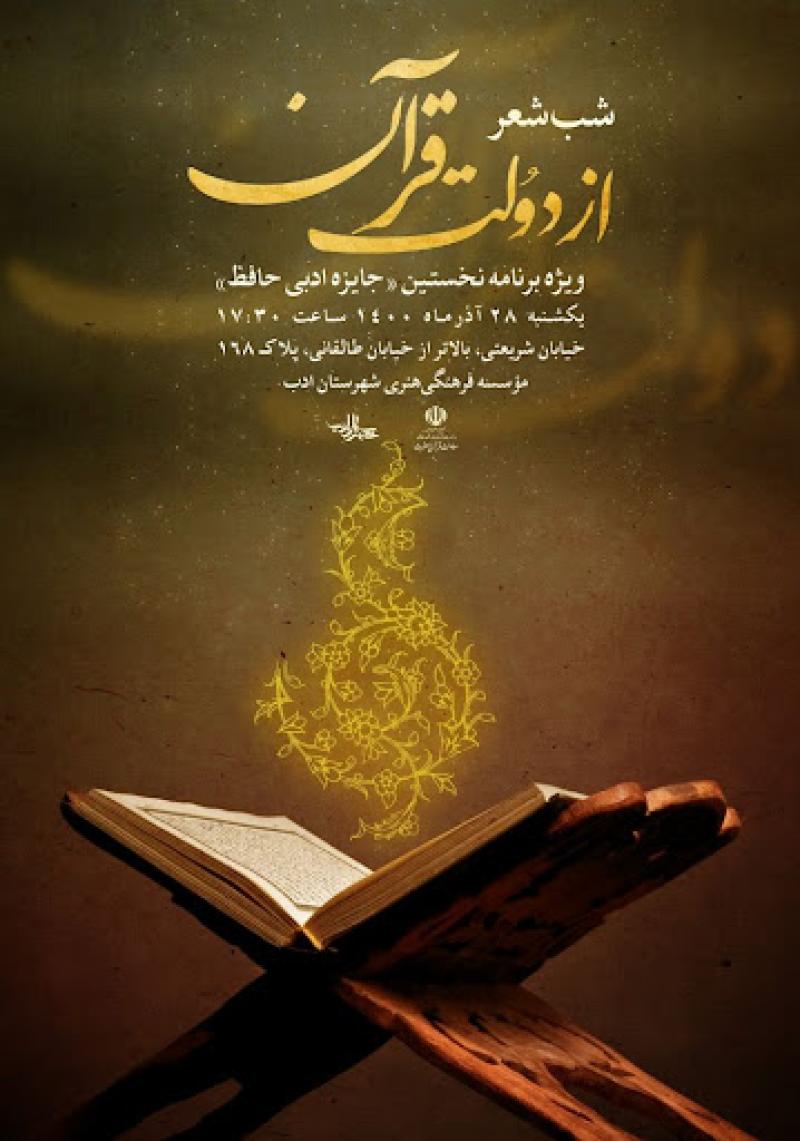 شب شعر
از دولت قرآن
ویژه برنامه نخستین «جایزه ادبی حافظ»
یکشنبه ۲۸ آذر ماه ۱۴۰۰ ساعت ۱۷:۳۰
خیابان شریعتی، بالاتر از خیابان طالقانی، پلاک ۱۶۸
مؤسسه فرهنگی‌هنری شهرستان ادب